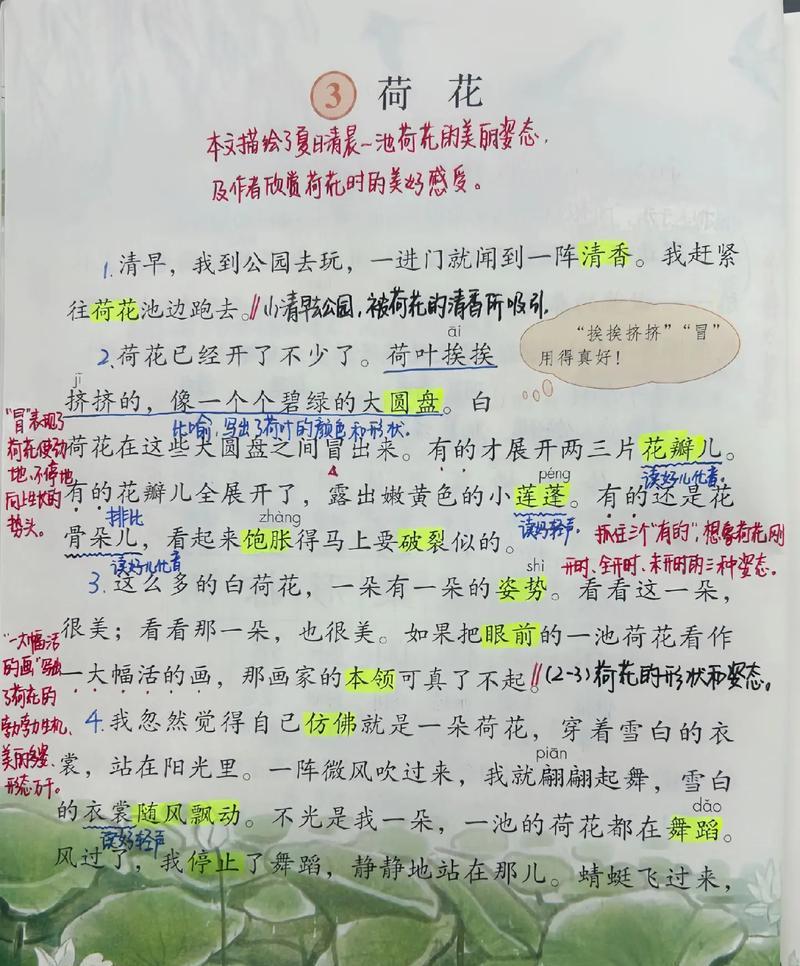 3 荷花
本文描绘了夏日清晨一池荷花的美丽姿态,
及作者欣赏荷花时的美好感受。
1. 清早，我到公园去玩，一进门就闻到一阵清香。我赶紧
往荷花池边跑去。// (1)清早去公园,被荷花的清香所吸引。
āi
“挨挨挤挤”“冒”
用得真好！
2. 荷花已经开了不少了。荷叶挨挨
jǐ
挤挤的，像一个个碧绿的大圆盘。白
比喻,写出了荷叶的颜色和形状.
荷花在这些大圆盘之间冒出来。有的才展开两三片花瓣儿。
读好儿化音。
“冒”表现了
荷花使劲
地、不停地
向上生长的
势头。
péng
有的花瓣儿全展开了，露出嫩黄色的小莲蓬。有的还是花
排比
读好轻声.
zhàng
骨朵儿，看起来饱胀得马上要破裂似的。
读好儿化音
抓住三个“有的”,想象荷花刚
开时、全开时、未开时的三种姿态。
shì
3. 这么多的白荷花，一朵有一朵的姿势。看看这一朵，
很美；看看那一朵，也很美。如果把眼前的一池荷花看作
一大幅活的画，那画家的本领可真了不起。// (2-3)荷花的形状和姿态。
“一大幅活
的画”写出
了荷花的
勃勃生机、
美丽多姿、
形态万千。
4. 我忽然觉得自己仿佛就是一朵荷花，穿着雪白的衣
piān
裳，站在阳光里。一阵微风吹过来，我就翩翩起舞，雪白
dǎo
的衣裳随风飘动。不光是我一朵，一池的荷花都在舞蹈。
读好轻声
风过了，我停止了舞蹈，静静地站在那儿。蜻蜓飞过来，